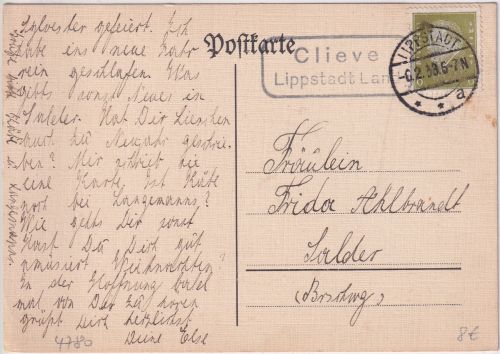 Sylvester gefeiert. Ich
habe ins neue Jahr
rein geschlafen. Was
gibts sonst Neues in
Salder. Hat Dir Lieschen
auch zu Neujahr geschrie-
ben? Mir schrieb sie
eine Karte. Ist Käte
noch bei Langemanns?
Wie gehts Dir sonst
Hast Du Dich gut
amüsiert Weihnachten?
In der Hoffnung bald
mal von Dir zu hören
grüßt Dich herzlichst
Deine Else
Postkarte
Clieve
Lippstadt Land
LIPPSTADT
6.2.33.6-7N
a
Fräulein
Frida Ahlbrandt
Salder
(Brschwg.)
4780
8€